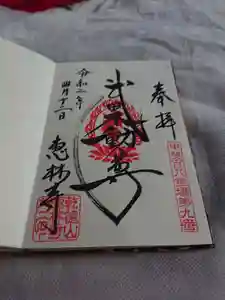 奉拝
武田不動尊
令和二年
四月十二日
恵林寺
甲斐百八霊場第九番
乾徳山